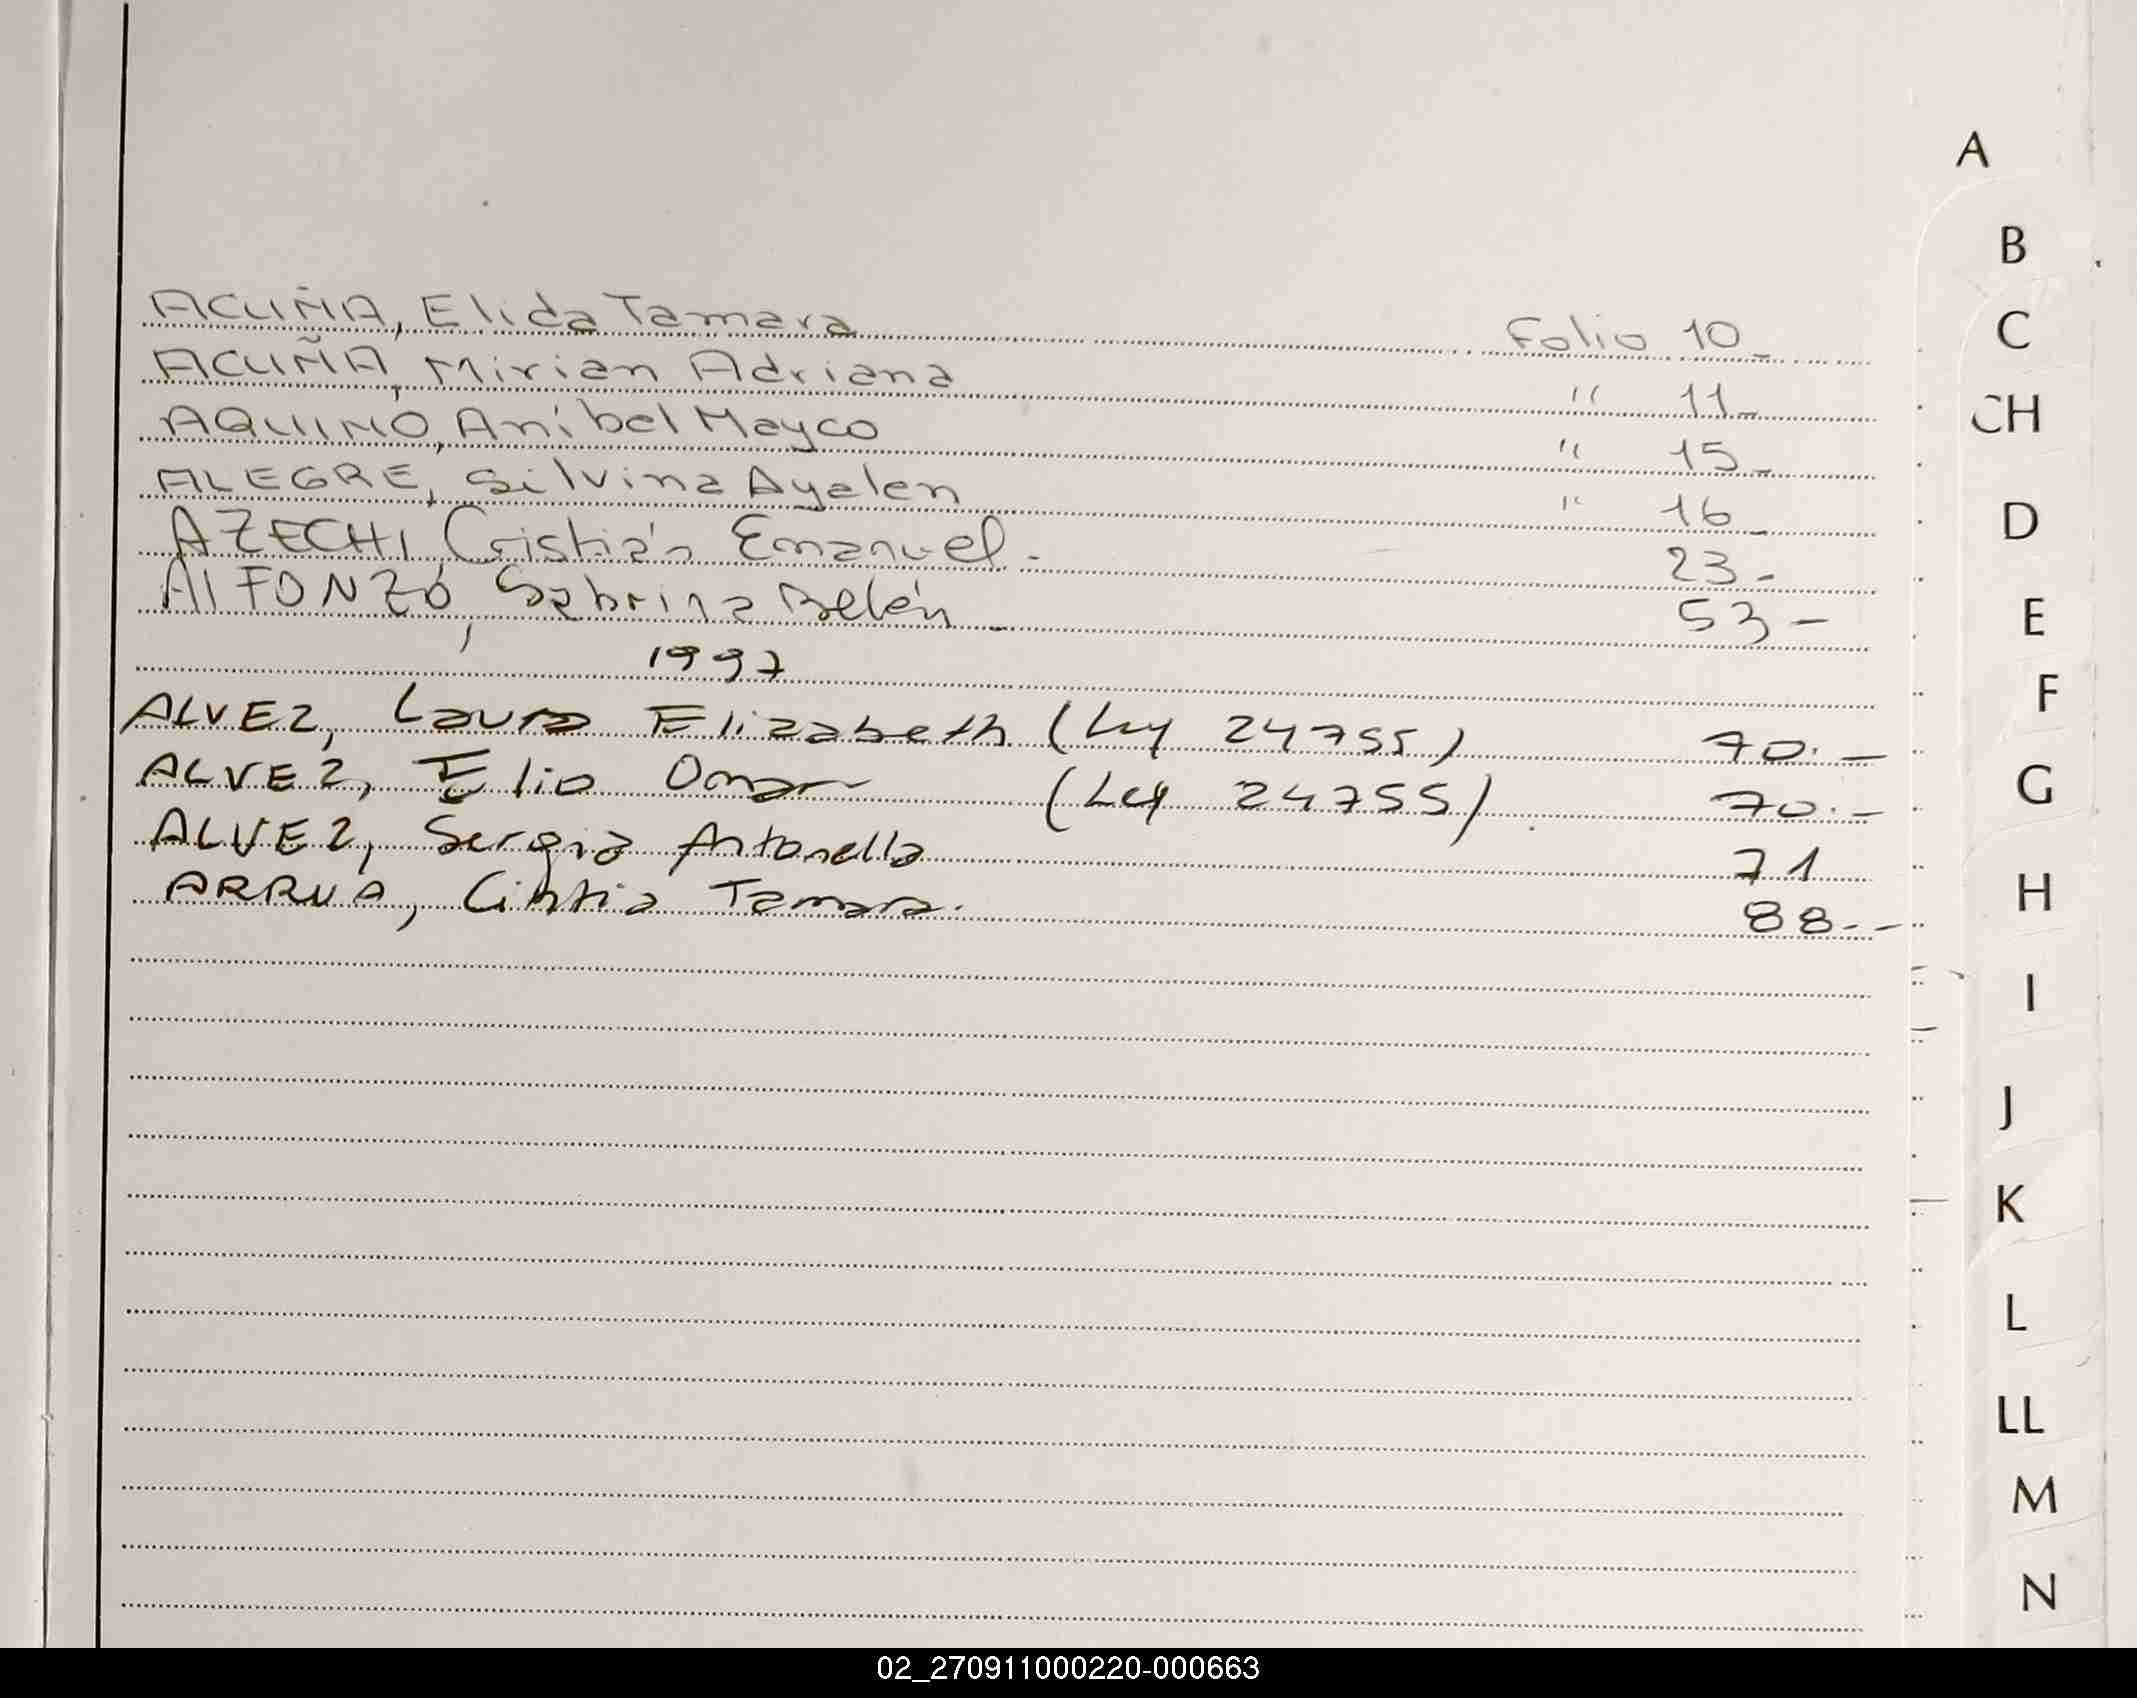 ACUÑA, Elida Tamara Folio 10-
ACUÑA, Mirian Adriana " 11-
AQUINO, Aníbal Mayco " 15-
ALEGRE, Silvina Ayelen " 16-
AZECHI, Cristián Emanuel. 23-
AlFONZO, Sabrina Belén- 53-
1997
ALVEZ, Laura Elizabeth (Ley 24755) 70.-
ALVEZ, Elio Omar (Ley 24755) 70.-
ALVEZ, Sergia Antonella 71
ARRUA, Cintia Tamara. 88.-
A
B
C
CH
D
E
F
G
H
I
J
K
L
LL
M
N
02_270911000220-000663